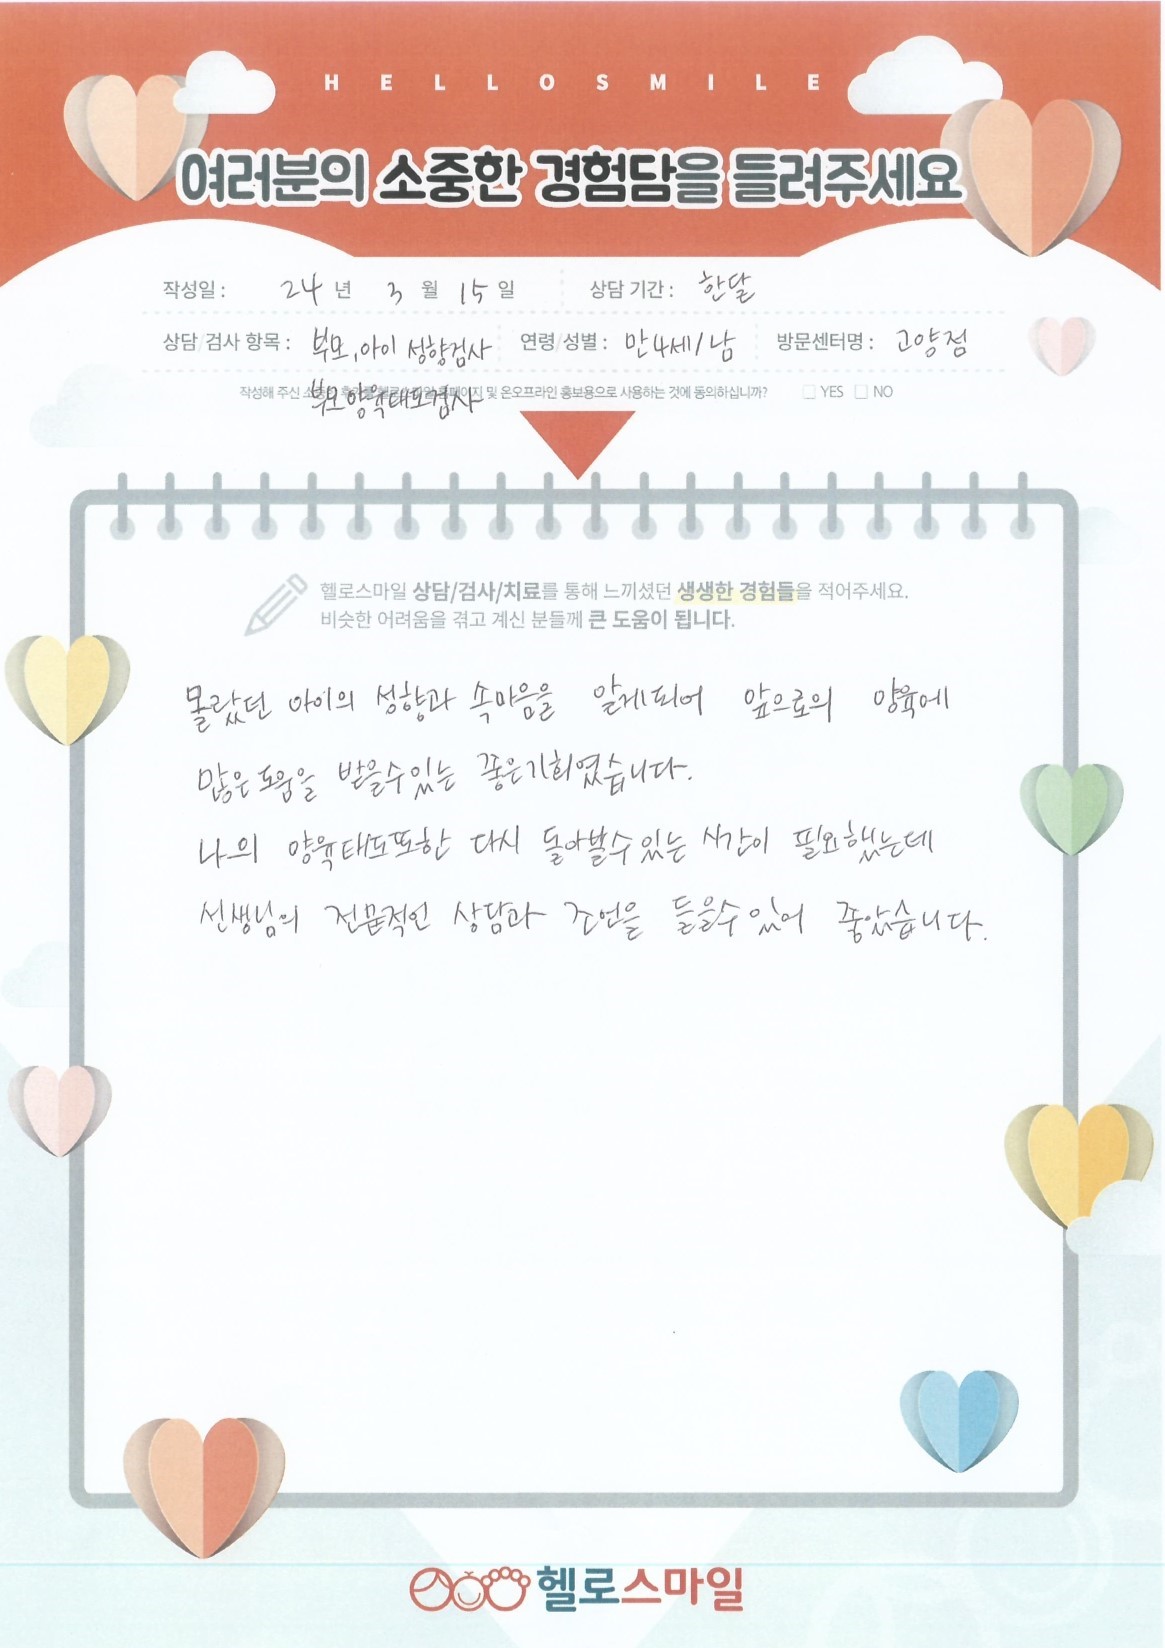 HELLOSMILE
여러분의 소중한 경험담을 들려주세요
작성일 : 24 년 3 월 15 일 상담 기간 : 한달
상담/검사 항목 : 부모, 아이 성향검사 연령/성별 : 만4세/남 방문센터명 : 고양점
부모양육태도검사
작성해 주신 소중한 후기를 헬로스마일 홈페이지 및 온오프라인 홍보용으로 사용하는 것에 동의하십니까? □ YES □ NO
헬로스마일 상담/검사/치료를 통해 느끼셨던 생생한 경험들을 적어주세요.
비슷한 어려움을 겪고 계신 분들께 큰 도움이 됩니다.
몰랐던 아이의 성향과 속마음을 알게되어 앞으로의 양육에
많은 도움을 받을수있는 좋은기회였습니다.
나의 양육태도또한 다시 돌아볼수있는 시간이 필요했는데
선생님의 전문적인 상담과 조언을 들을수있어 좋았습니다.
헬로스마일